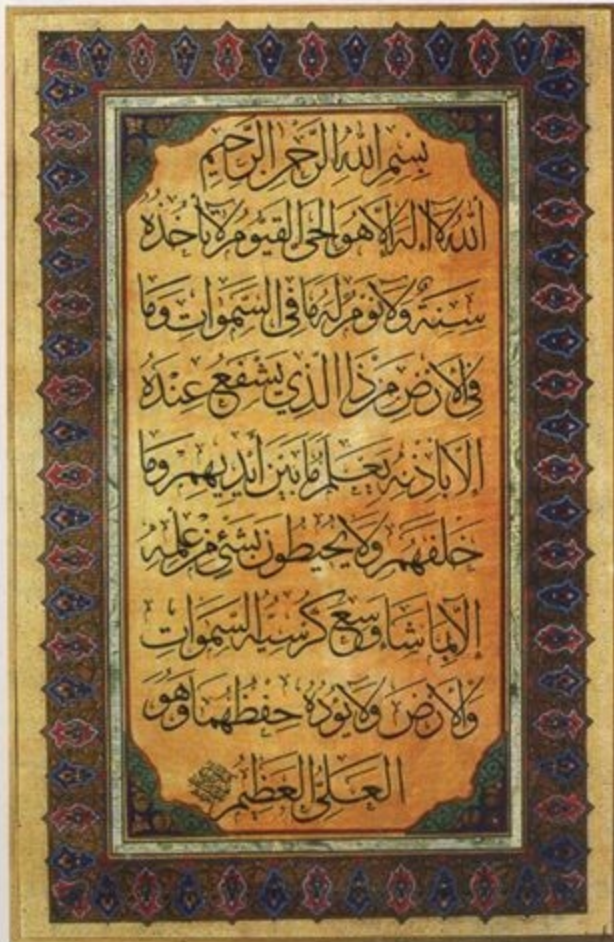 بِسْمِ اللهِ الرَّحْمنِ الرَّحِيمِ
اَللهُ لَآ اِلهَ اِلَّا هُوَ الْحَيُّ الْقَيُّومُ لَا تَأْخُذُهُ
سِنَةٌ وَلَا نَوْمٌ لَهُ مَا فِي السَّموَاتِ وَمَا
فِي الْأَرْضِ مَنْ ذَا الَّذِي يَشْفَعُ عِنْدَهُ
اِلَّا بِاِذْنِهِ يَعْلَمُ مَا بَيْنَ أَيْدِيهِمْ وَمَا
خَلْفَهُمْ وَلَا يُحِيطُونَ بِشَيْءٍ مِنْ عِلْمِهِ
اِلَّا بِمَا شَاءَ وَسِعَ كُرْسِيُّهُ السَّموَاتِ
وَالْأَرْضَ وَلَا يَؤُدُهُ حِفْظُهُمَا وَهُوَ
الْعَلِيُّ الْعَظِيمُ